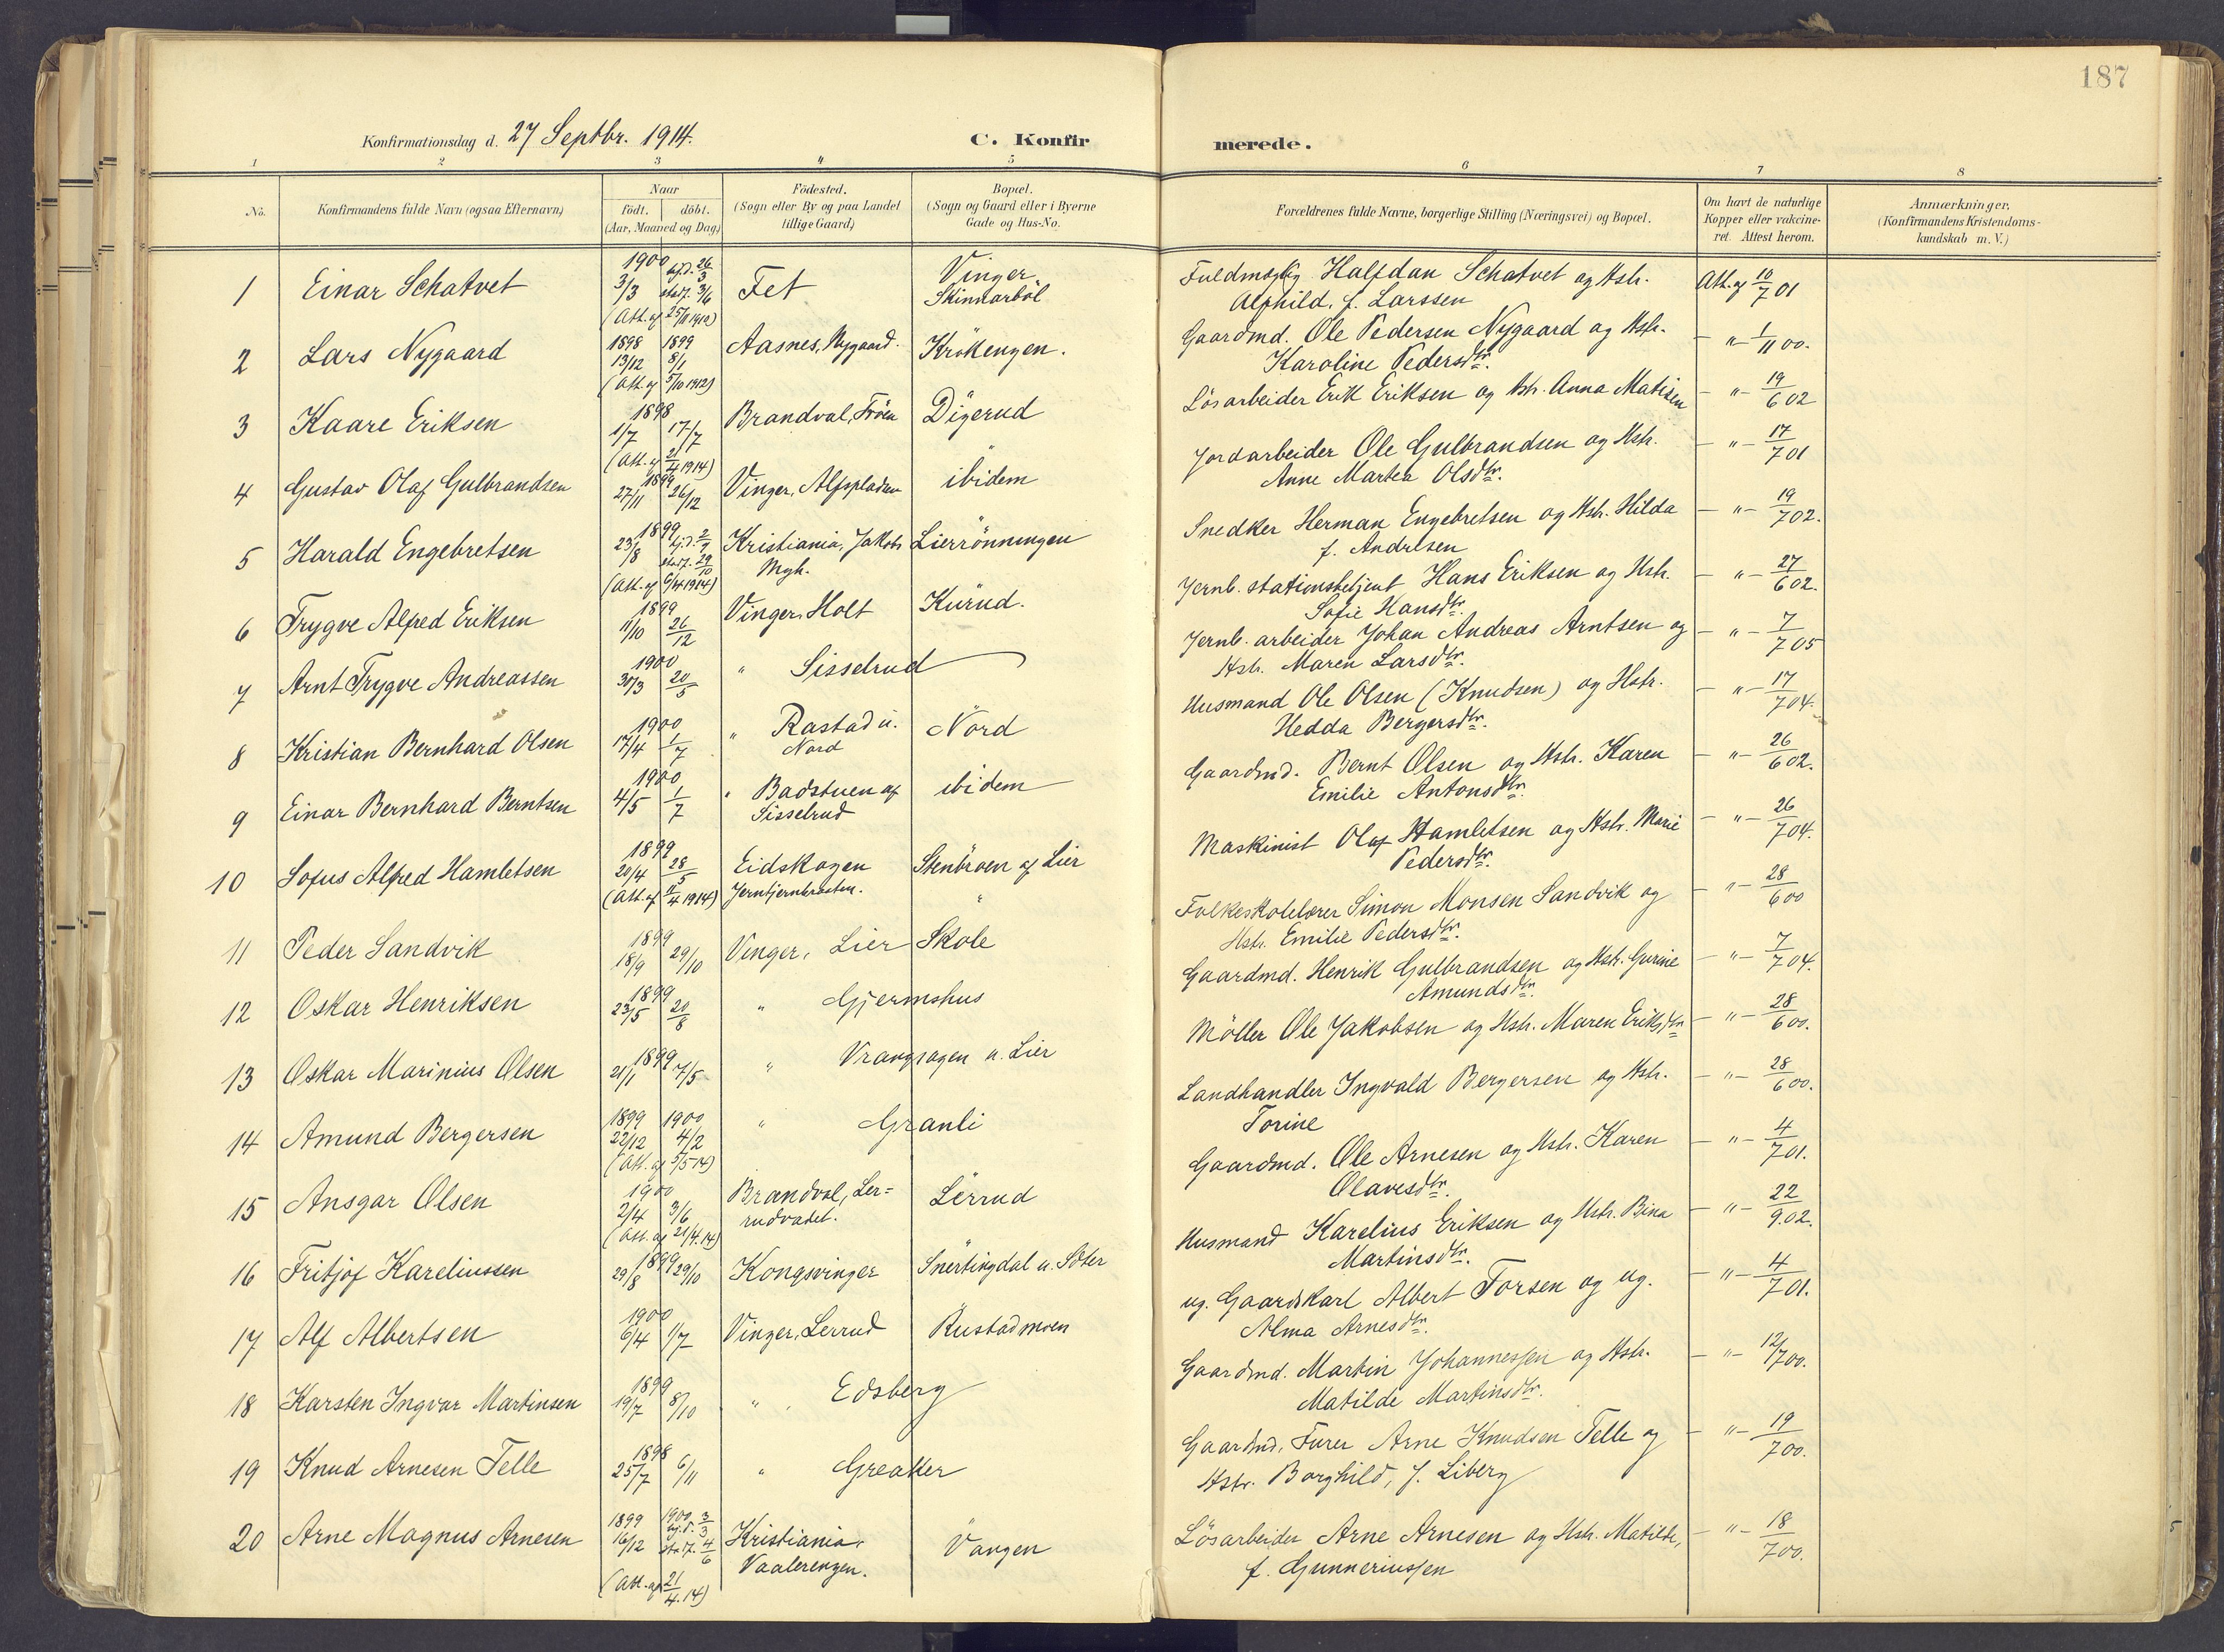 187
Konfirmationsdag d. 27 Septbr. 1914.
C. Konfirmerede.
1 2 3 4 5 6 7 8
No.
Konfirmandens fulde Navn (ogsaa Efternavn)
Naar
födt. döbt.
(Aar, Maaned og Dag)
Födested.
(Sogn eller By og paa Landet
tillige Gaard)
Bopæl.
(Sogn og Gaard eller i Byerne
Gade og Hus-No.
Forældrenes fulde Navne, borgerlige Stilling (Næringsvei) og Bopæl.
Om havt de naturlige
Kopper eller vakcine-
ret. Attest herom.
Anmærkninger,
(Konfirmandens Kristendoms-
kundskab m. V.)
1 Einar Schatvet 1900 3/3 hjd. 26/3 stadf. 3/6 Fet Vinger Skinnarböl Fuldmægtig Halfdan Schatvet og Hstr. Att. af 10/7 01
(Att. af 25/11 1912) Alfhild, f. Larssen
2 Lars Nygaard 1898 13/12 1899 8/1 Aasnes, Nygaard. Krökengen. Gaardmd. Ole Pedersen Nygaard og Hstr. - " - 1/11 00.
(Att. af 5/10 1912) Karoline Pedersdtr.
3 Kaare Eriksen 1898 1/7 17/7 Brandval, Fröen Digerud Lösarbeider Erik Eriksen og Hstr. Anna Matisen - " - 19/6 02
(Att. af 21/4 1914)
4 Gustav Olaf Gulbrandsen 1899 27/11 26/12 Vinger, Alfspladsen ibidem Jordarbeider Ole Gulbrandsen og Hstr. - " - 17/7 01
Anne Martea Olsdtr.
5 Harald Engebretsen 1899 23/8 hjd. 2/9 stadf. 29/10 Kristiania, Jakobs Mgh. Lierrönningen Snedker Herman Engebretsen og Hstr. Hilda - " - 19/7 02.
(Att. af 6/4 1914) f. Andresen
6 Trygve Alfred Eriksen 1899 11/10 26/12 Vinger, Holt Kurud. Jernb. stationsbetjent Hans Eriksen og Hstr. - " - 27/6 02.
Sofie Hansdtr.
7 Arnt Trygve Andreassen 1900 30/3 20/5 " Sisselrud Jernb. arbeider Johan Andreas Arntsen og - " - 7/7 05
Hstr. Maren Larsdtr.
8 Kristian Bernhard Olsen 1900 17/4 1/7 " Rastad u. Nord Nord Husmand Ole Olsen (Knudsen) og Hstr. - " - 17/7 04.
Hedda Bergersdtr.
9 Einar Bernhard Berntsen 1900 4/5 1/7 " Badstuen af Sisselrud ibidem Gaardmd. Bernt Olsen og Hstr. Karen - " - 26/6 02.
Emilie Antonsdtr.
10 Sofus Alfred Hamletsen 1899 20/4 28/5 Eidskogen Stenbroen af Lier Maskinist Olaf Hamletsen og Hstr. Marie - " - 26/7 04.
(Att. af 11/4 1914) Pedersdtr.
11 Peder Sandvik 1899 18/9 29/10 Vinger, Lier Skole Folkeskolelærer Simon Monsen Sandvik og - " - 28/6 00
Hstr. Emilie Pedersdtr.
12 Oskar Henriksen 1899 23/5 20/8 " Gjermshus Gaardmd. Henrik Gulbrandsen og Hstr. Gurine - " - 7/7 04.
Amundsdtr.
13 Oskar Marinius Olsen 1899 21/1 7/5 " Vrangsagen u. Lier Möller Ole Jakobsen og Hstr. Maren Eriksdtr. - " - 28/6 00.
14 Amund Bergersen 1899 22/12 1900 4/2 " Granli Landhandler Ingvald Bergersen og Hstr. - " - 28/6 00.
(Att. af 5/5 14) Torine
15 Ansgar Olsen 1900 2/4 3/6 Brandval, Ler= rudvadet. Lerrud Gaardmd. Ole Arnesen og Hstr. Karen - " - 4/7 01.
(Att. af 21/4. 14) Olavesdtr.
16 Fritjof Kareliussen 1899 29/8 29/10 Kongsvinger Snertingdal u. Sæter Husmand Karelius Eriksen og Hstr. Bina - " - 22/9.02.
Martinsdtr.
17 Alf Albertsen 1900 6/4 1/7 Vinger, Lerrud Rustadmoen ug. Gaardskarl Albert Torsen og ug. - " - 4/7 01.
Alma Arnesdtr.
18 Karsten Ingvar Martinsen 1899 19/7 8/10 " Edsberg Gaardmd. Martin Johannessen og Hstr. - " - 12/7 00.
Matilde Martinsdtr.
19 Knud Arnesen Telle 1898 25/7 6/11 " Greaker Gaardmd., Furer Arne Knudsen Telle og - " - 19/7 00.
Hstr. Borghild, f. Liberg
20 Arne Magnus Arnesen 1899 16/12 1900 hjd. 3/3 stadf. 4/6 Kristiania, Vaalerengen. Vangen Lösarbeider Arne Arnesen og Hstr. Matilde, - " - 18/7 00.
(Att. af 21/4. 14) f. Gunneriussen